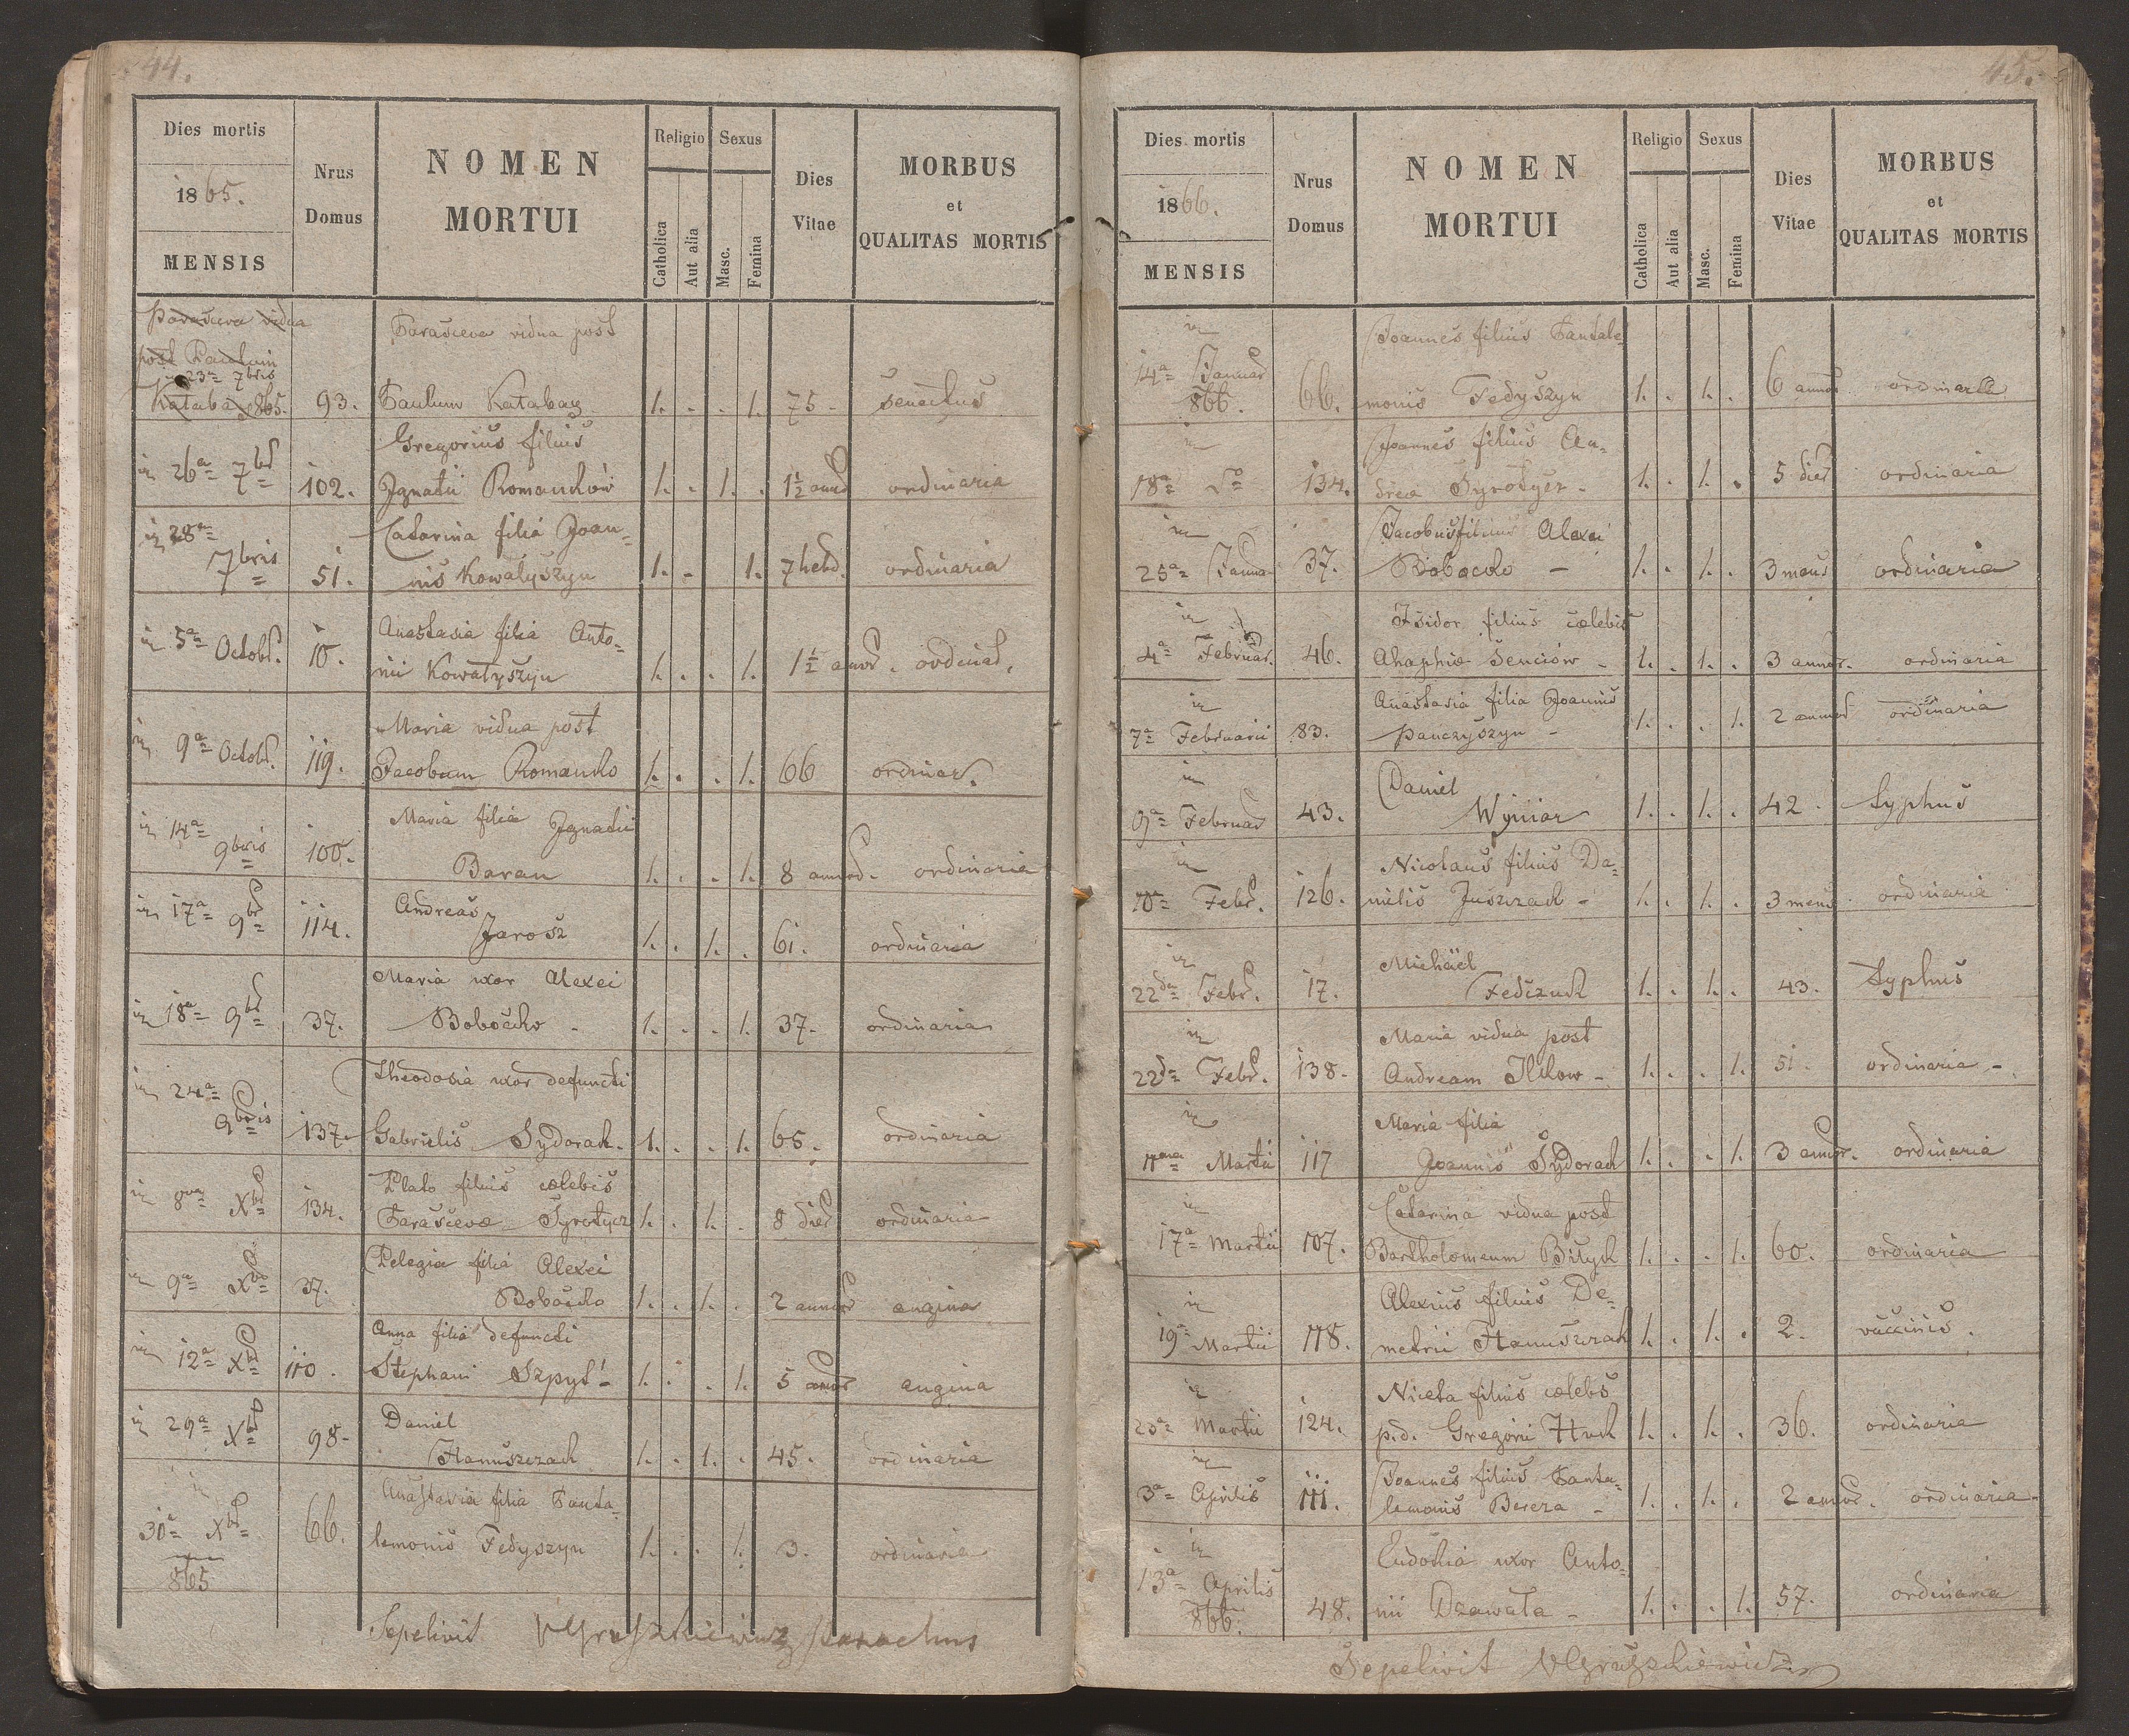 44.
Dies mortis
1865.
MENSIS
Nrus
Domus
NOMEN
MORTUI
Religio
Catholica
Aut alia
Sexus
Masc.
Femina
Dies
Vitae
MORBUS
et
QUALITAS MORTIS
Parascieva vidua
post Paulum
in 23a 7bris
Kataba 865.
Parascieva vidua post
93. Paulum Katabay 1. . . 1. 75 - senectus
Gregorius filius
in 26a 7br 102. Ignatii Romanków 1. . 1. . 1½ annor ordinaria
in 28a Catarina filia Joan=
7bris 51. nis Kowatyszyn 1. - 1. 7 hebd. ordinaria
Anastasia filia Anto=
in 5a Octobr. 10. nii Kowatyszyn 1. . . 1. 1½ annor. ordinar.
Maria vidua post
in 9a Octobr. 119. Jacobum Romanko 1. . . 1. 66 ordinar.
in 14a Maria filia Ignatii
9bris 100. Baran 1. . . 1. 8 annor. ordinaria
Andreas
in 17a 9br 114. Jarosz 1. . 1. . 61. ordinaria
Maria uxor Alexei
in 18a 9br 37. Boboćko - 1. . . 1. 37. ordinaria
in 24a Theodosia uxor defuncti
9bris 137. Gabrielis Sydorak. 1. . . 1. 65. ordinaria
Plato filius cœlebis
in 8va Xbr 134. Parascievæ Syrotycz 1. . 1. . 8 dier ordinaria
Pelegia filia Alexei
in 9a Xbr 37. Boboćko 1. . 1. . 2 annor angina
Anna filia defuncti
in 12a Xbr 110. Stephani Szpyt - 1. . . 1. 5 annor angina
Daniel
in 29a Xbr 98- Hanuszczak 1. . 1. . 45. ordinaria
in Anastasia filia Panta=
30a Xbr 66. lemonis Fedyszyn 1. . . 1. 3. ordinaria
865
Sepelivit Gruszkiewicz parochus
45.
Dies mortis
1866.
MENSIS
Nrus
Domus
NOMEN
MORTUI
Religio
Catholica
Aut alia
Sexus
Masc.
Femina
Dies
Vitae
MORBUS
et
QUALITAS MORTIS
in Joannes filius Pantale=
14a Januar
866. 66. monis Fedyszyn 1. . 1. . 6 annor ordinaria
in Joannes filius An=
18a 134. dreae Syrotycz - 1. . 1. . 5 dier ordinaria
in Jacobus filius Alexei
25a Januar 37. Boboćko - 1. . 1. . 3 mens ordinaria
in Isidor filius cœlebis
4a Februar. 46. Ahaphiæ Senciów - 1. . 1. . 3 annor. ordinaria
in Anastasia filia Joannis
7a Februarii 83. Panczyszyn - 1. . . 1. 2 annor ordinaria
in Daniel
9a Februar 43. Wyniar 1. . 1. . 42. typhus
in Nicolaus filius Da=
10a Febr. 126. nielis Juszczak - 1. . 1. . 3 mens. ordinaria
in Michäel
22da Febr. 17. Fedczuk 1. . 1. . 43. typhus
in Maria vidua post
22da Febr. 138. Andream Ilkow - 1. . . 1. 51. ordinaria -
in Maria filia
11ma Martii 117 Joannis Sydorak 1. . . 1. 3 annor. ordinaria
in Catarina vidua post
17a Martii 107. Bartholomeum Bilyk 1. . . 1. 60. ordinaria
in Alexius filius De=
19a Martii 118. metrii Hanuszczak 1. . 1. . 2. vaccinis.
in Niceta filius cælebs
23a Martii 124. p.d. Gregorii Huk 1. . 1. . 36. ordinaria
in Joannes filius Panta=
3a Aprilis 111. lemonis Bereza - 1. . 1. . 2 annor. ordinaria
in Eudokia uxor Anto=
13a Aprilis
866. 48. nii Dzawała - 1. . . 1. 57. ordinaria
Sepelivit Gruszkiewicz